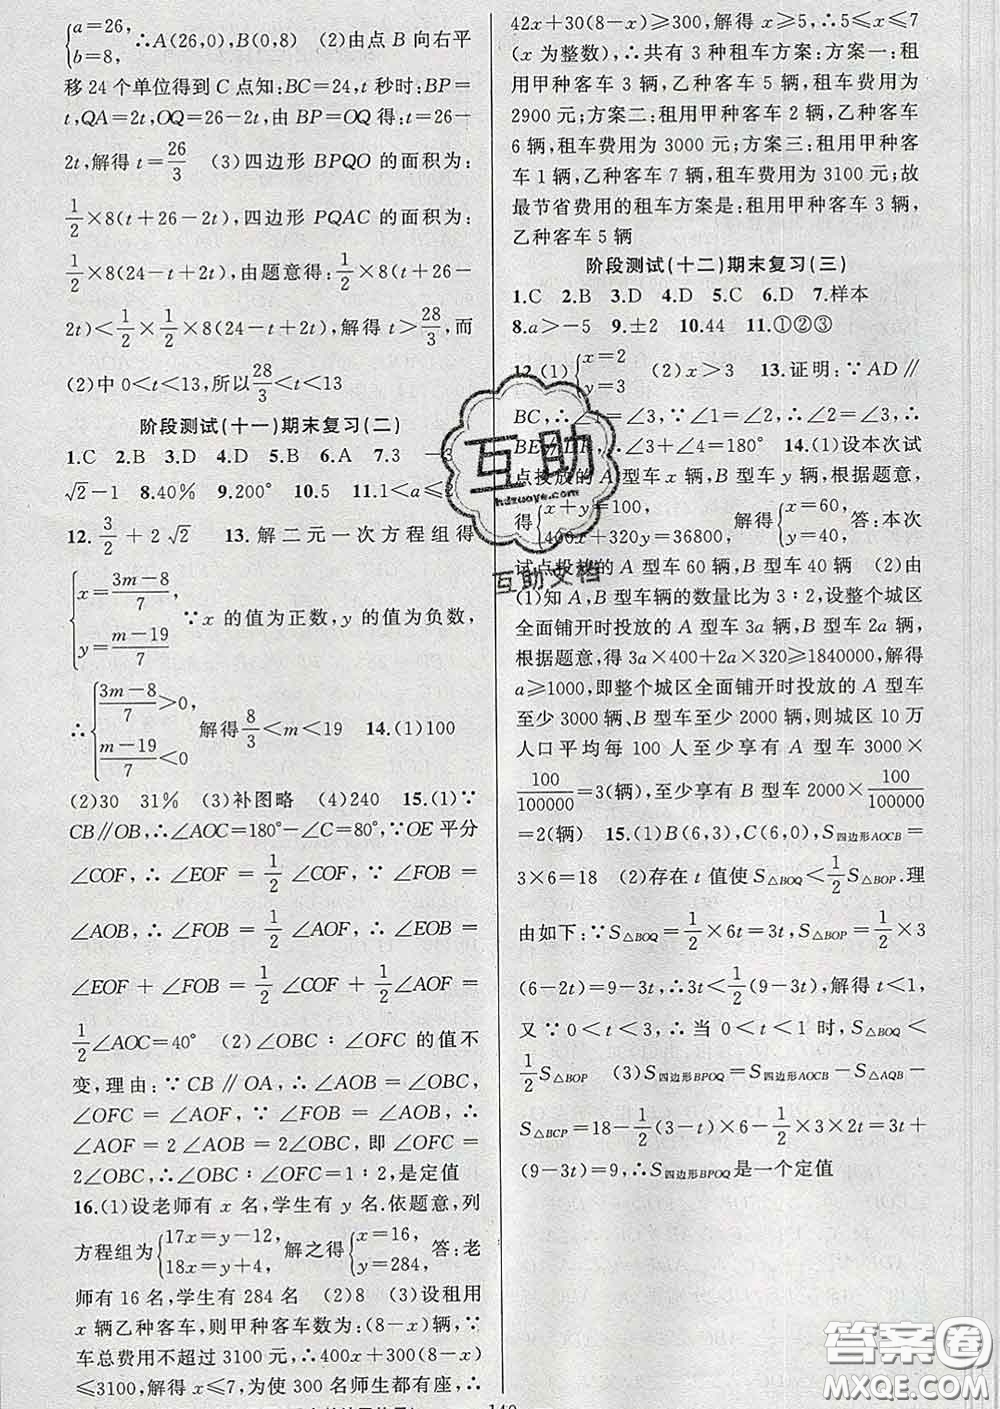 {a=26, b=8, ∴A(26,0),B(0,8) (2)由点 B 向右平
移 24 个单位得到 C 点知:BC=24,t 秒时:BP=
t,QA=2t,OQ=26-2t,由 BP=OQ 得:t=26-
2t,解得 t=26/3 (3)四边形 BPQO 的面积为:
1/2×8(t+26-2t),四边形 PQAC 的面积为:
1/2×8(24-t+2t),由题意得:1/2×8(t+26-
2t)<1/2×1/2×8(24-t+2t),解得 t>28/3,而
(2)中 0<t<13,所以28/3<t<13
阶段测试(十一)期末复习(二)
1.C 2.B 3.D 4.D 5.B 6.A 7.3 -3
√2-1 8.40% 9.200° 10.5 11.1<a≤
12.3/2+2√2 13.解二元一次方程组得
{x=(3m-8)/7, y=(m-19)/7 ∵x 的值为正数,y 的值为负数,
∴{(3m-8)/7>0, (m-19)/7<0 解得8/3<m<19 14.(1)100
(2)30 31% (3)补图略 (4)240 15.(1)∵
CB∥OB,∴∠AOC=180°-∠C=80°,∵OE 平分
∠COF,∴∠EOF=1/2∠COF,∵∠FOB=
∠AOB,∴∠FOB=1/2∠AOF,∴∠EOB=
∠EOF+∠FOB=1/2∠COF+1/2∠AOF=
1/2∠AOC=40° (2)∠OBC:∠OFC 的值不
变,理由:∵CB∥OA,∴∠AOB=∠OBC,
∠OFC=∠AOF,∵∠FOB=∠AOB,∴
∠AOF=2∠AOB=2∠OBC,即∠OFC=
2∠OBC,∴∠OBC:∠OFC=1:2,是定值
16.(1)设老师有 x 名,学生有 y 名.依题意,列
方程组为{17x=y-12, 18x=y+4, 解之得{x=16, y=284, 答:老
师有 16 名,学生有 284 名 (2)8 (3)设租用
x 辆乙种客车,则甲种客车数为:(8-x)辆,∵
车总费用不超过 3100 元,∴400x+300(8-x)
≤3100,解得 x≤7,为使 300 名师生都有座,∴
42x+30(8-x)≥300,解得 x≥5,∴5≤x≤7
(x 为整数),∴共有 3 种租车方案:方案一:租
用甲种客车 3 辆,乙种客车 5 辆,租车费用为
2900 元;方案二:租用甲种客车 2 辆,乙种客车
6 辆,租车费用为 3000 元;方案三:租用甲种客
车 1 辆,乙种客车 7 辆,租车费用为 3100 元;故
最节省费用的租车方案是:租用甲种客车 3 辆,
乙种客车 5 辆
阶段测试(十二)期末复习(三)
1.C 2.B 3.D 4.D 5.C 6.D 7.样本
8.a>-5 9.±2 10.44 11.①②③
12.(1){x=2 y=3 (2)x>3 13.证明:∵AD∥
BC,∴∠1=∠3,∵∠1=∠2,∴∠2=∠3,∴
BE∥DF,∴∠3+∠4=180° 14.(1)设本次试
点投放的 A 型车 x 辆,B 型车 y 辆,根据题意,
得{x+y=100, 400x+320y=36800, 解得{x=60, y=40, 答:本次
试点投放的 A 型车 60 辆,B 型车 40 辆 (2)由
(1)知 A,B 型车辆的数量比为 3:2,设整个城区
全面铺开时投放的 A 型车 3a 辆,B 型车 2a 辆,
根据题意,得 3a×400+2a×320≥1840000,解得
a≥1000,即整个城区全面铺开时投放的 A 型车
至少 3000 辆、B 型车至少 2000 辆,则城区 10 万
人口平均每 100 人至少享有 A 型车 3000×
100/100000=3(辆),至少享有 B 型车 2000×100/100000
=2(辆) 15.(1)B(6,3),C(6,0),S四边形AOCB=
3×6=18 (2)存在 t 值使 S△BOQ<1/2S△BOP.理
由如下:∵S△BOQ=1/2×6t=3t,S△BOP=1/2×3
(6-2t)=9-3t,∴3t<1/2(9-3t),解得 t<1,
又∵0<t<3,∴当 0<t<1 时,S△BOQ<
1/2S△BOP (3)S四边形BPOQ=S四边形AOCB-S△AQB-
S△BCP=18-1/2(3-t)×6-1/2×3×2t=3t+
(9-3t)=9,∴S四边形BPOQ是一个定值
互助
hdzuoye.com
互助文档
答案圈
MXQE.COM